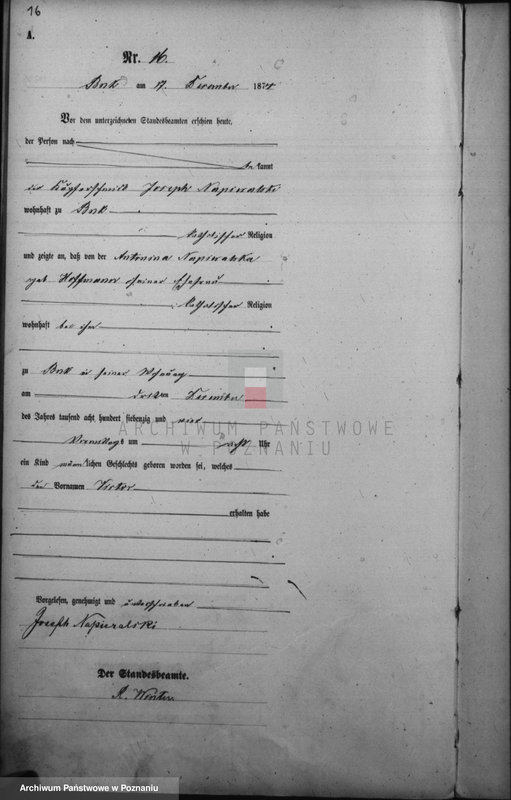 16
A.
Nr. 16.
Buk am 17. December 1874
Vor dem unterzeichneten Standesbeamten erschien heute,
der Person nach
be kannt
der Kupferschmidt Joseph Napieralski
wohnhaft zu Buk
katholischer Religion
und zeigte an, daß von der Antonina Napieralska
geb Hoffmann seiner Ehefrau
katholischer Religion
wohnhaft bei ihm
zu Buk in seiner Wohnung
am dritten Dezember
des Jahres tausend acht hundert siebenzig und vier
Vormittags um acht Uhr
ein Kind männlichen Geschlechts geboren worden sei, welches
den Vornamen Victor
erhalten habe
ARCHIWUM PAŃSTWOWE
W POZNANIU
Vorgelesen, genehmigt und unterschrieben
Joseph Napieralski
Der Standesbeamte.
Archiwum Państwowe w Poznaniu